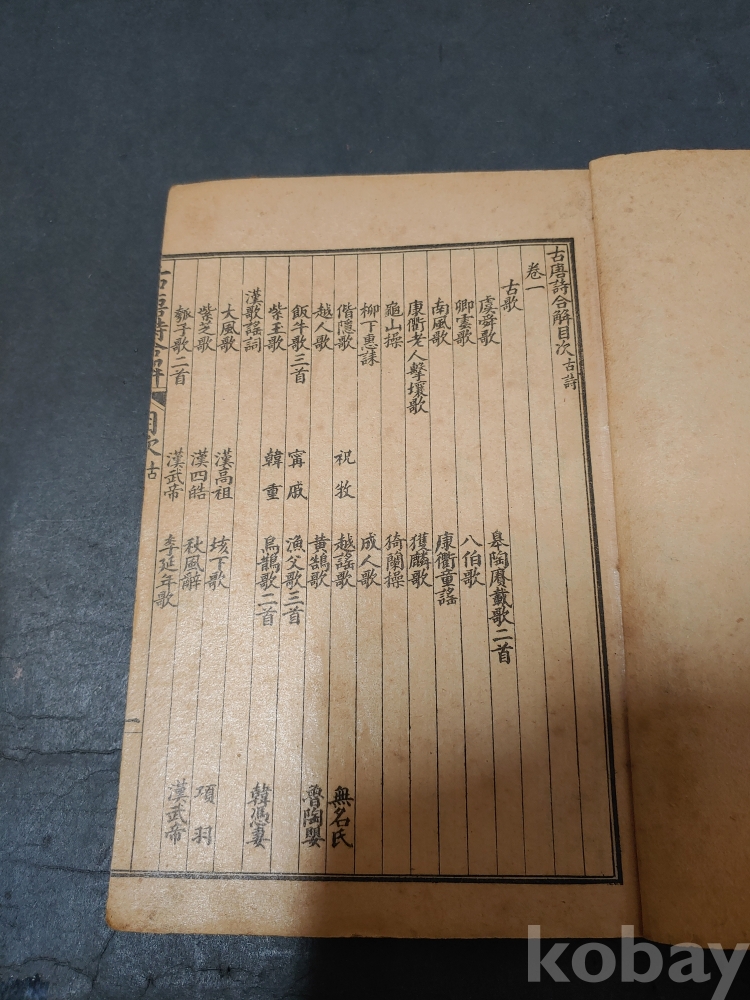 古唐詩合解目次 古詩
卷一
古歌
虞舜歌 皋陶賡載歌二首
卿雲歌 八伯歌
南風歌 康衢童謠
康衢老人擊壤歌 獲麟歌
龜山操 猗蘭操
柳下惠誄 成人歌
偕隱歌 祝牧 越謠歌 無名氏
越人歌 黃鵠歌 魯陶嬰
飯牛歌三首 甯戚 漁父歌三首
紫玉歌 韓重 烏鵲歌二首 韓憑妻
漢歌謠詞
大風歌 漢高祖 垓下歌 項羽
紫芝歌 漢四皓 秋風辭 漢武帝
瓠子歌二首 漢武帝 李延年歌
古唐詩合解 目次 古 一
kobay